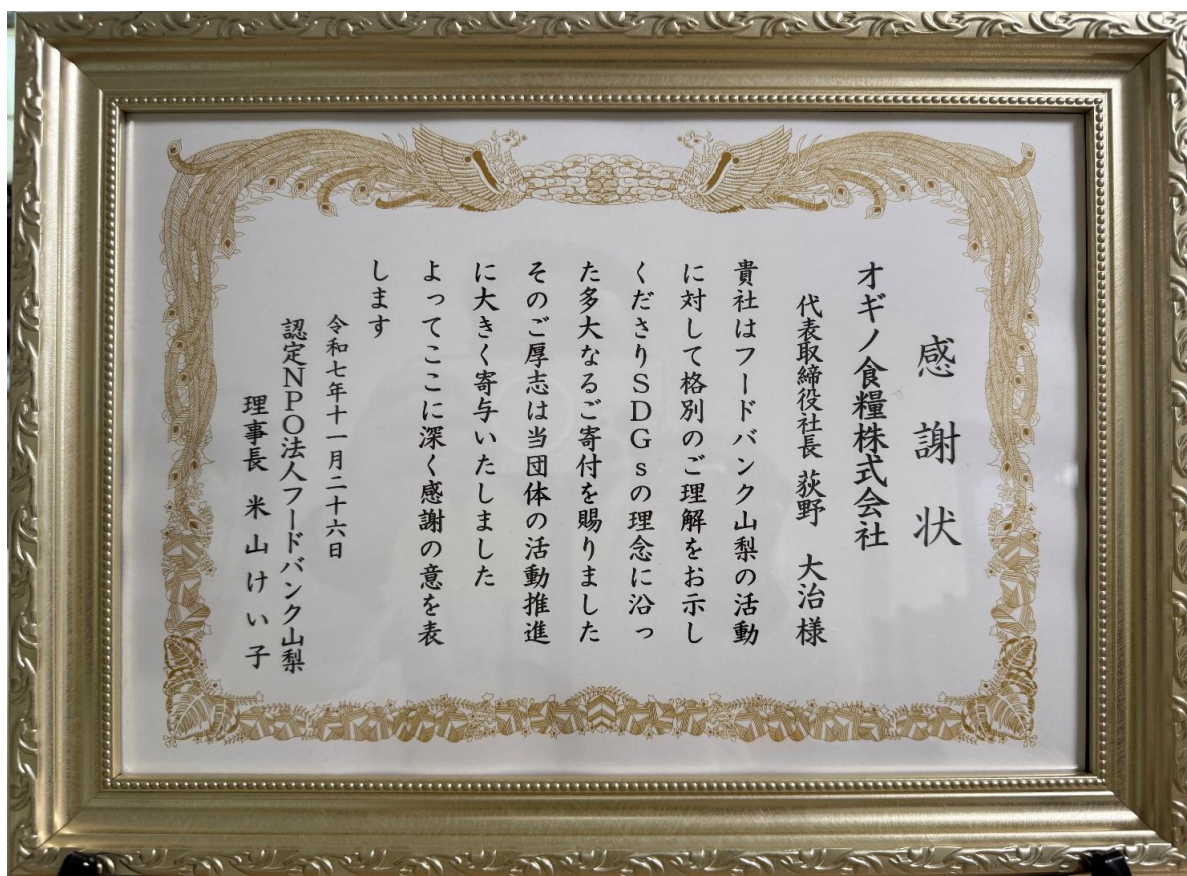 感謝状
オギノ食糧株式会社
代表取締役社長 荻野 大治様
貴社はフードバンク山梨の活動
に対して格別のご理解をお示し
くださりSDGsの理念に沿っ
た多大なるご寄付を賜りました
そのご厚志は当団体の活動推進
に大きく寄与いたしました
よってここに深く感謝の意を表
します
令和七年十一月二十六日
認定NPO法人フードバンク山梨
理事長 米山けい子